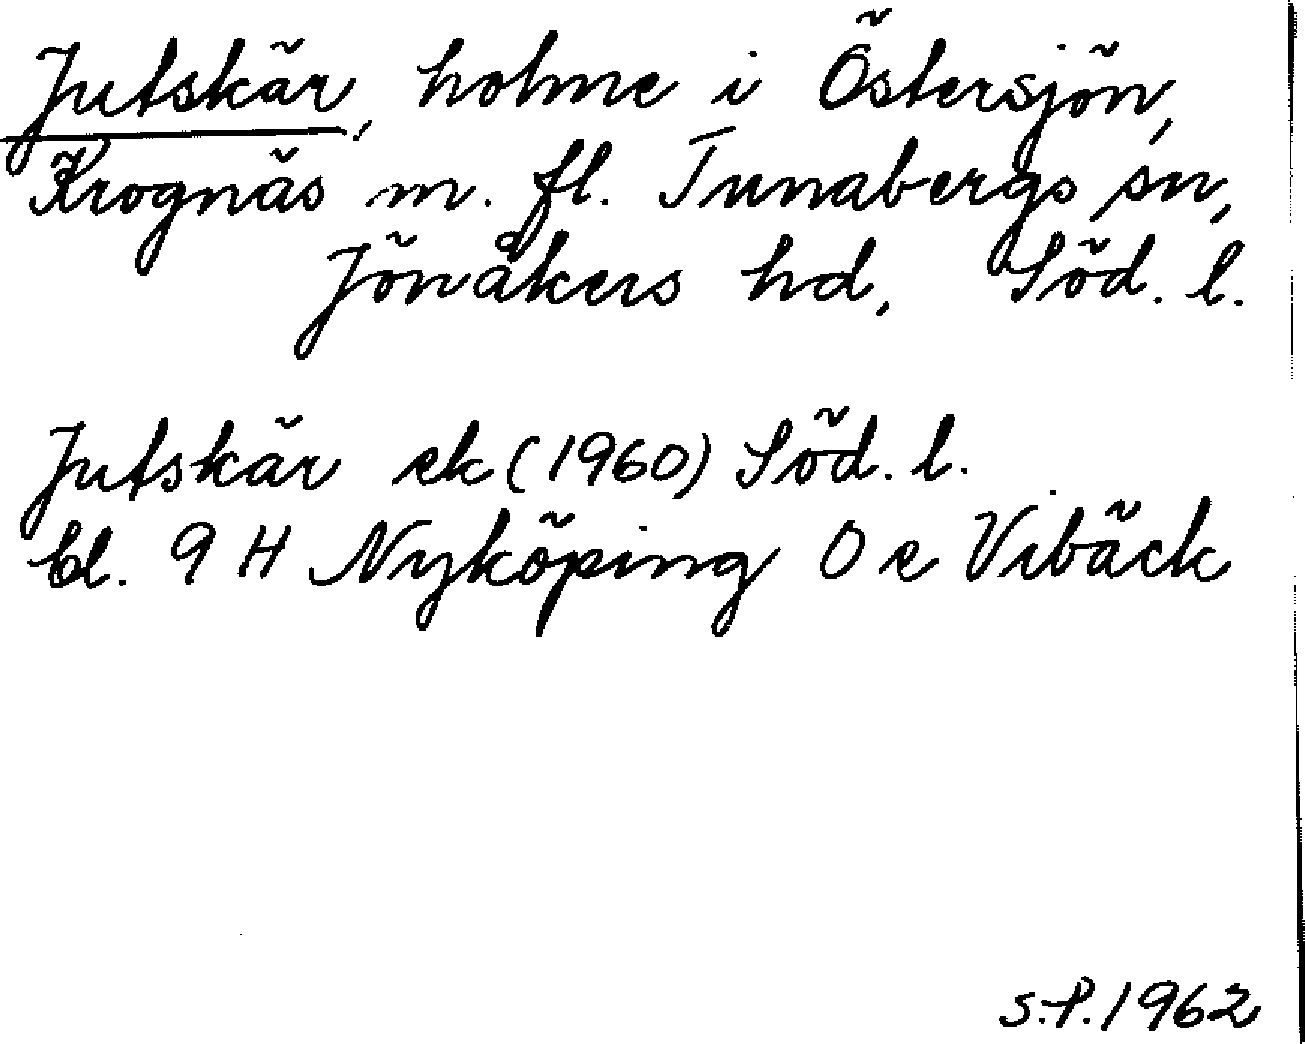 Jutskär, holme i Östersjön,
Krognäs m. fl. Tunabergs sn,
Jönåkers hd, Söd. l.
Jutskär ek (1960) Söd. l.
bl. 9 H Nyköping O e Vibäck
S.P. 1962